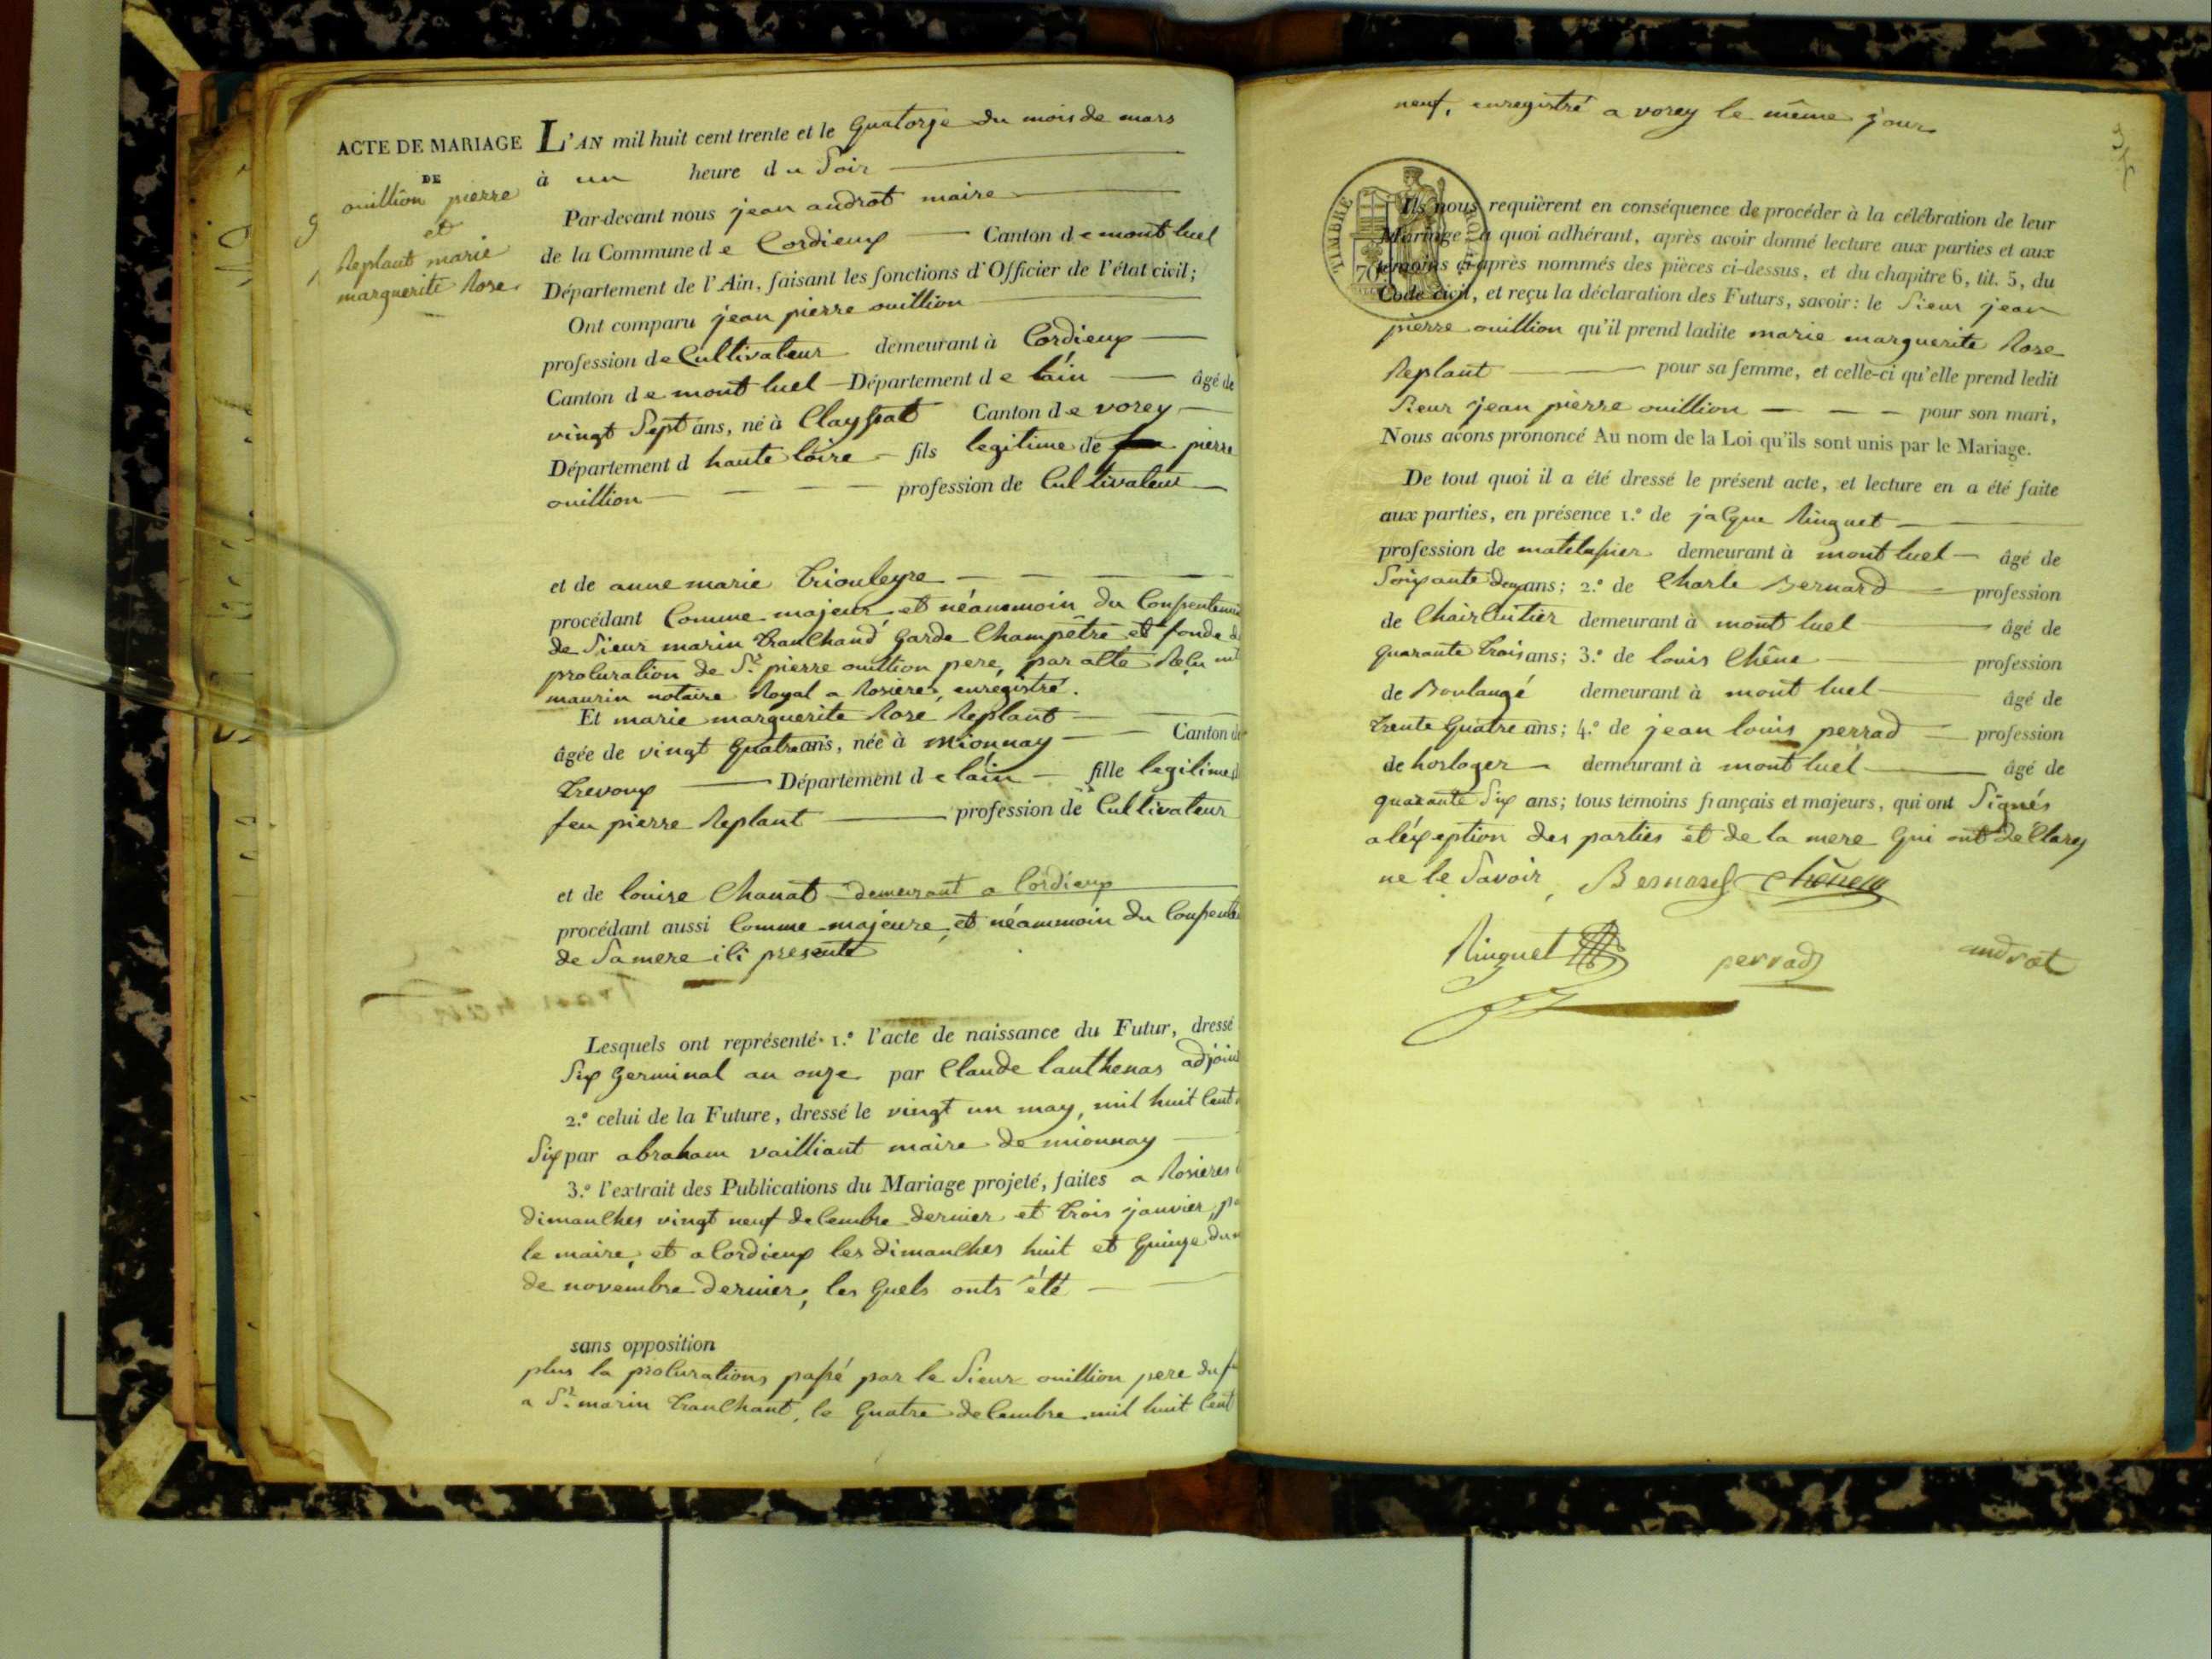 ACTE DE MARIAGE
DE
ouillion pierre
et
Replant marie
marguerite Rose
L'AN mil huit cent trente et le quatorze du mois de mars
à un heure du Soir
Par-devant nous jean androt maire
de la Commune de Cordieux Canton de mont luel
Département de l'Ain, faisant les fonctions d'Officier de l'état civil;
Ont comparu jean pierre ouillion
profession de Cultivateur demeurant à Cordieux
Canton de mont luel Département de l'ain âgé de
vingt Sept ans, né à Canton de vorey
Département d haute loire fils legitime de pierre
ouillion profession de Cultivateur
et de anne marie triouleyre
procédant Comme majeur et néanmoin du
de Sieur marin tranchand garde Champêtre et fondé
procuration de Sr. pierre ouillion pere, par acte Reçu
maurin notaire Royal a Rosieres, enregistré.
Et marie marguerite Rose Replant
âgée de vingt quatre ans, née à mionnay Canton de
trevoux Département de l'ain fille legitime
feu pierre Replant profession de Cultivateur
et de louise Chanat demeurant a Cordieux
procédant aussi Comme majeure, et néanmoin du
de Sa mere ici presente
Lesquels ont représenté 1.º l'acte de naissance du Futur, dressé
Six germinal an onze par Claude lanthenas adjoint
2.º celui de la Future, dressé le vingt un may, mil huit Cent
Six par abraham vailliant maire de mionnay
3.º l'extrait des Publications du Mariage projeté, faites a Rosieres
dimanches vingt neuf decembre dernier et trois janvier,
le maire, et a Cordieux les dimanches huit et quinze du
de novembre dernier, les quels onts été
sans opposition
plus la procurations passé par le Sieur ouillion pere du
a Sr. marin tranchant, le quatre decembre mil huit Cent
neuf, enregistré a vorey le même jour
TIMBRE ROYAL
70
Ils nous requièrent en conséquence de procéder à la célébration de leur
Mariage à quoi adhérant, après avoir donné lecture aux parties et aux
témoins ci-après nommés des pièces ci-dessus, et du chapitre 6, tit. 5, du
Code civil, et reçu la déclaration des Futurs, savoir: le Sieur jean
pierre ouillion qu'il prend ladite marie marguerite Rose
Replant pour sa femme, et celle-ci qu'elle prend ledit
Sieur jean pierre ouillion pour son mari,
Nous avons prononcé Au nom de la Loi qu'ils sont unis par le Mariage.
De tout quoi il a été dressé le présent acte, et lecture en a été faite
aux parties, en présence 1.º de jacque Ringuet
profession de matelassier demeurant à mont luel âgé de
Soixante deux ans; 2.º de Charle Bernard profession
de Chaircuitier demeurant à mont luel âgé de
quarante trois ans; 3.º de louis Chêne profession
de Boulangé demeurant à mont luel âgé de
trente quatre ans; 4.º de jean louis perrad profession
de horloger demeurant à mont luel âgé de
quarante Six ans; tous témoins français et majeurs, qui ont Signés
a l'éxception des parties et de la mere qui ont declarez
ne le Savoir, Bernard
Ringuet perrad androt